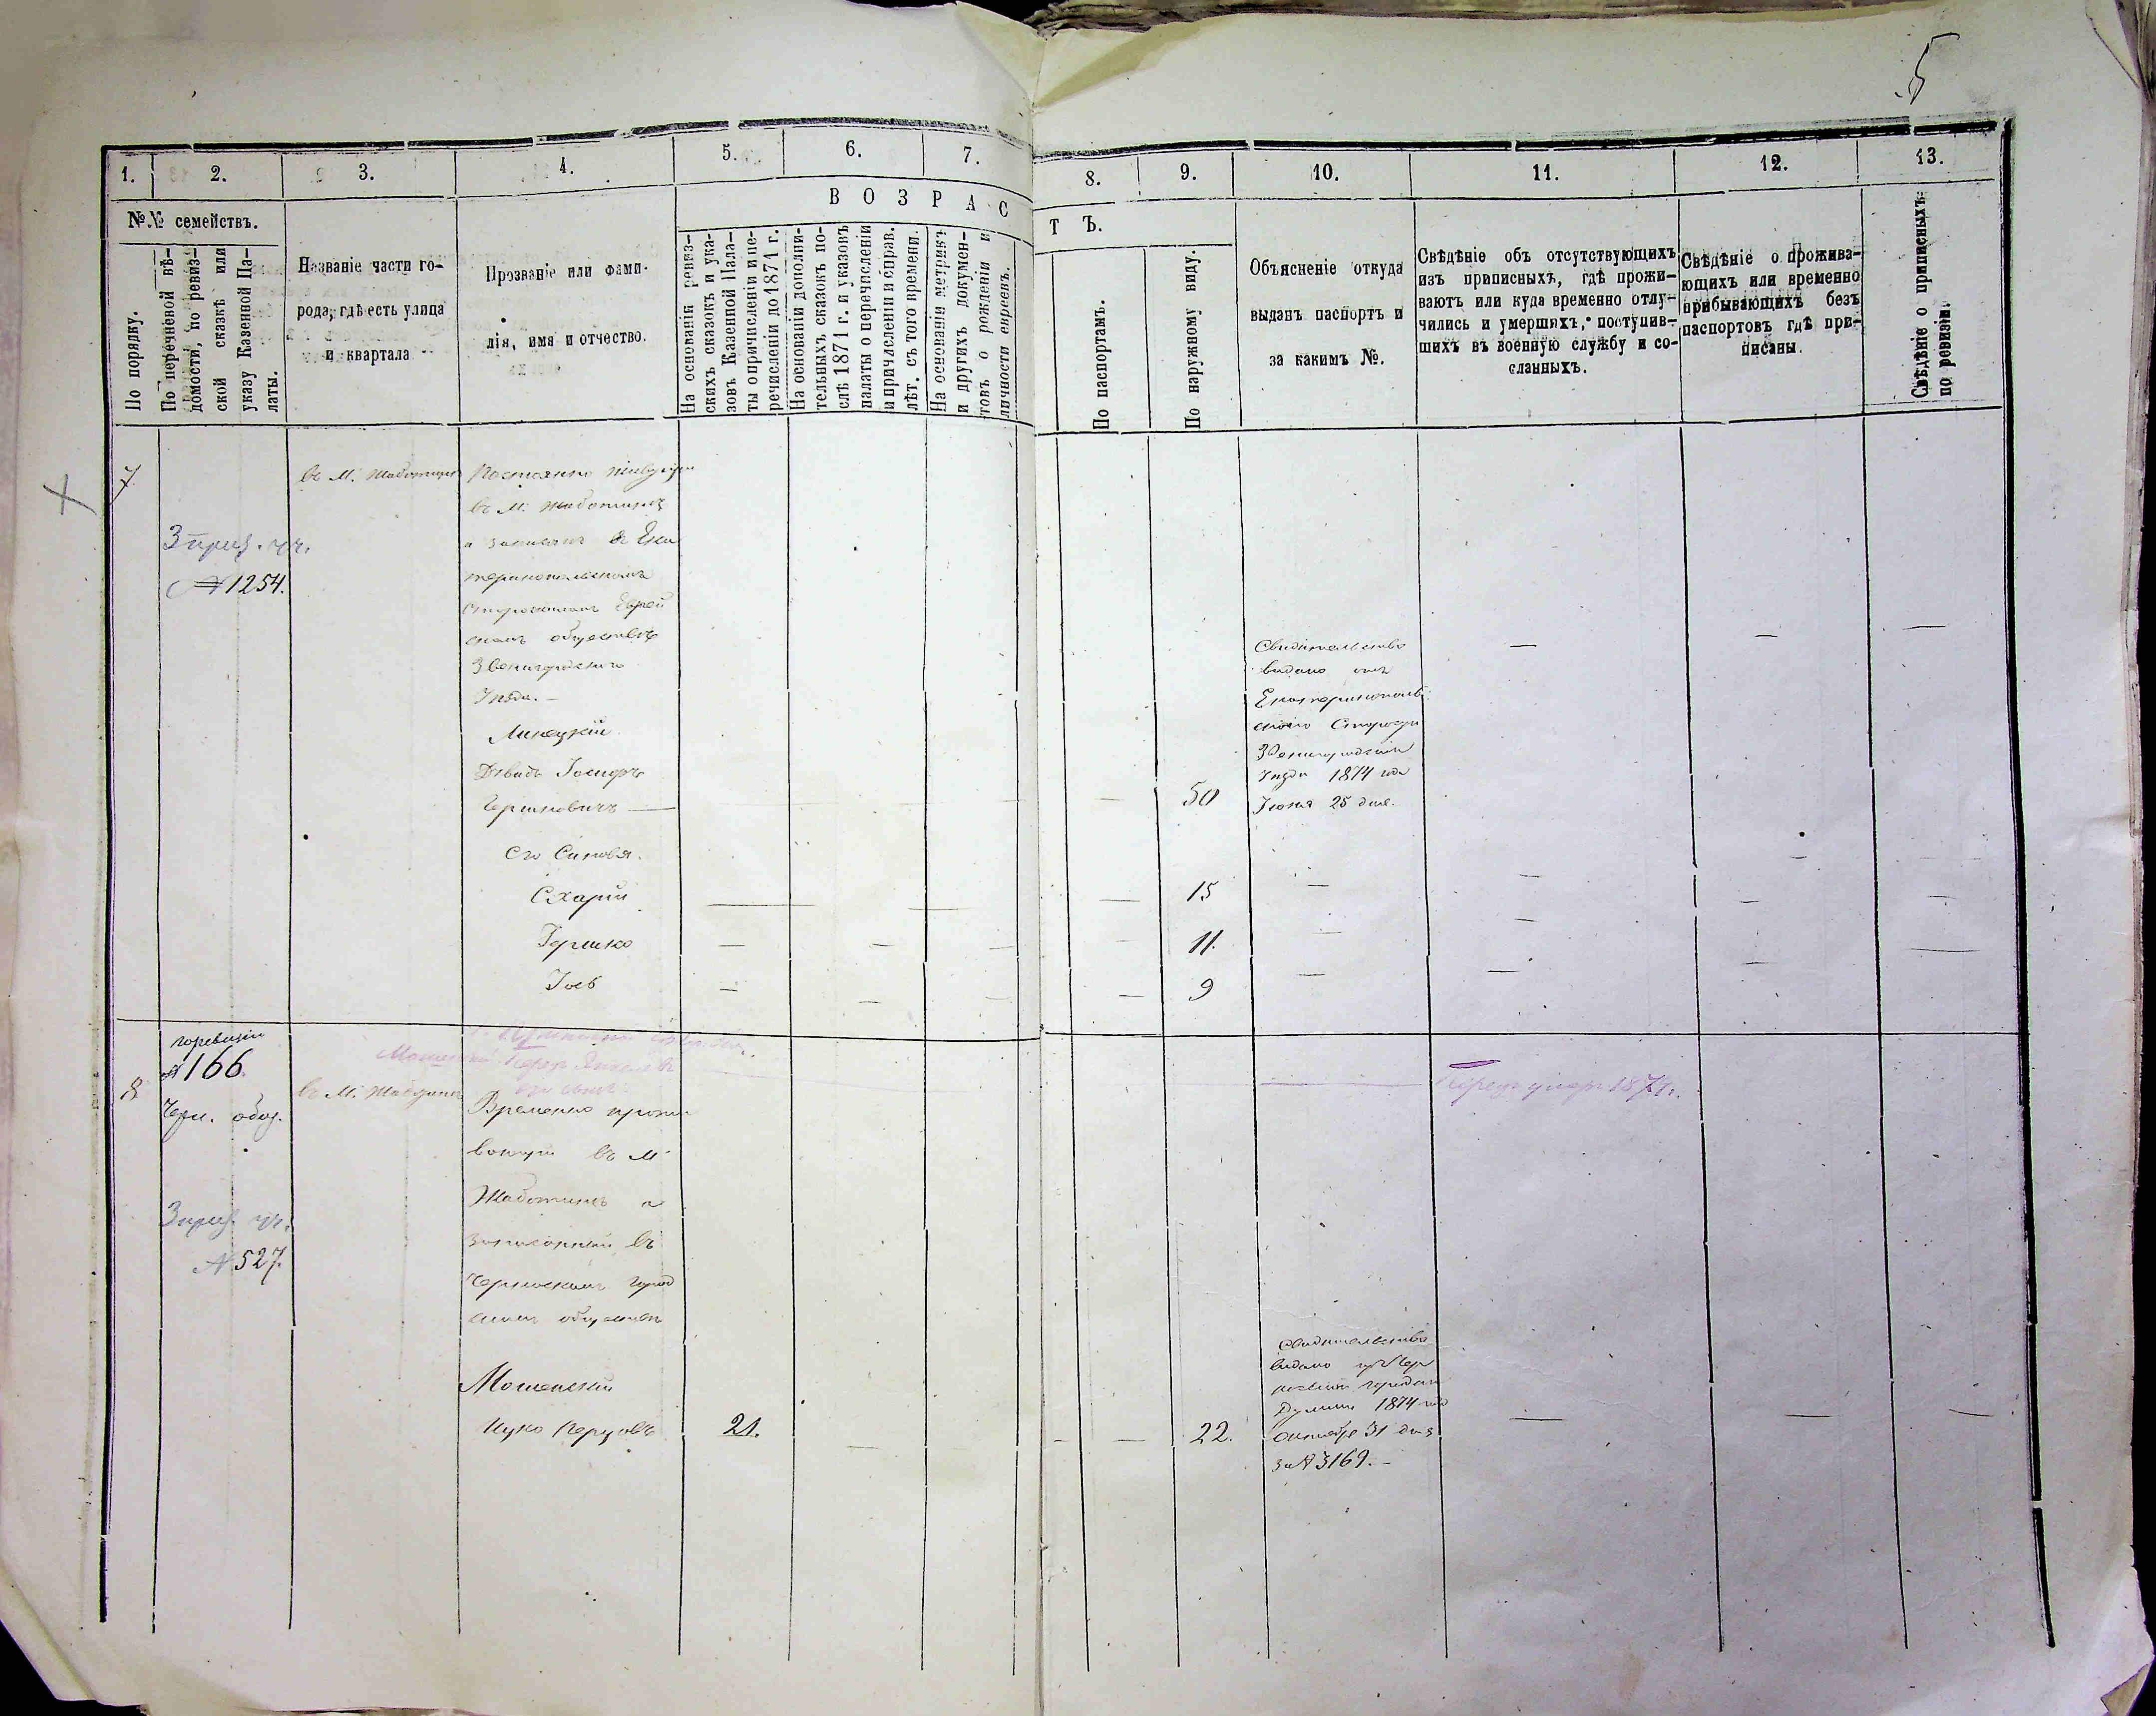 5
1. 2. 3. 4. 5. 6. 7. 8. 9. 10. 11. 12. 13.
№№ семействъ.
По порядку.
По перечневой вѣ-
домости, по ревиз-
ской сказкѣ или
указу Казенной Па-
латы.
Названіе части го-
рода, гдѣ есть улица
и квартала
Прозваніе или фами-
лія, имя и отчество.
ВОЗРАСТЪ.
На основаніи ревиз-
скихъ сказокъ и ука-
зовъ Казенной Пала-
ты о причисленіи и пе-
речисленіи до 1871 г.
На основаніи дополни-
тельныхъ сказокъ по-
слѣ 1871 г. и указовъ
палаты о перечисленіи
и причисленіи и справ.
лѣт. съ того времени.
На основаніи метрикъ
и другихъ докумен-
товъ о рожденіи и
личности евреевъ.
По паспортамъ.
По наружному виду.
Объясненіе откуда
выданъ паспортъ и
за какимъ №.
Свѣдѣніе объ отсутствующихъ
изъ приписныхъ, гдѣ прожи-
ваютъ или куда временно отлу-
чились и умершихъ, поступив-
шихъ въ военную службу и со-
сланныхъ.
Свѣдѣніе о прожива-
ющихъ или временно
прибывающихъ безъ
паспортовъ гдѣ при-
писаны.
Свѣдѣніе о приписныхъ
по ревизіи.
7
3 приз. уч.
№ 1254.
въ М. Жаботинѣ
Постоянно
въ М. Жаботинѣ
а записан въ Ека
теринопольскомъ
Еврей
скомъ обществѣ
Звенигородскаго
Уѣзда. —
Линецкій
Дувидъ Іосифъ
Гершковичъ —
50
Свидительство
видано отъ
Екатеринополь
скаго Старосты
Звенигородскаго
Уѣзда 1874 года
Іюня 25 дня.
Его Синовья.
Схарий
15
Гершко
11.
Іосъ
9
8
поревизіи
№ 166
Черк. общ.
3 приз. уч.
№ 527.
въ М. Жаботинѣ
умер 187
Временно прожи
вающій въ М
Жаботинѣ а
записанный въ
Черкаскомъ город
скомъ обществѣ
Мошенскій
Ицко Перцовъ
21.
22.
Свидительство
видано изъ Чер
каской Городской
Думы 1874 года
Октября 31 дня
за № 3169. —